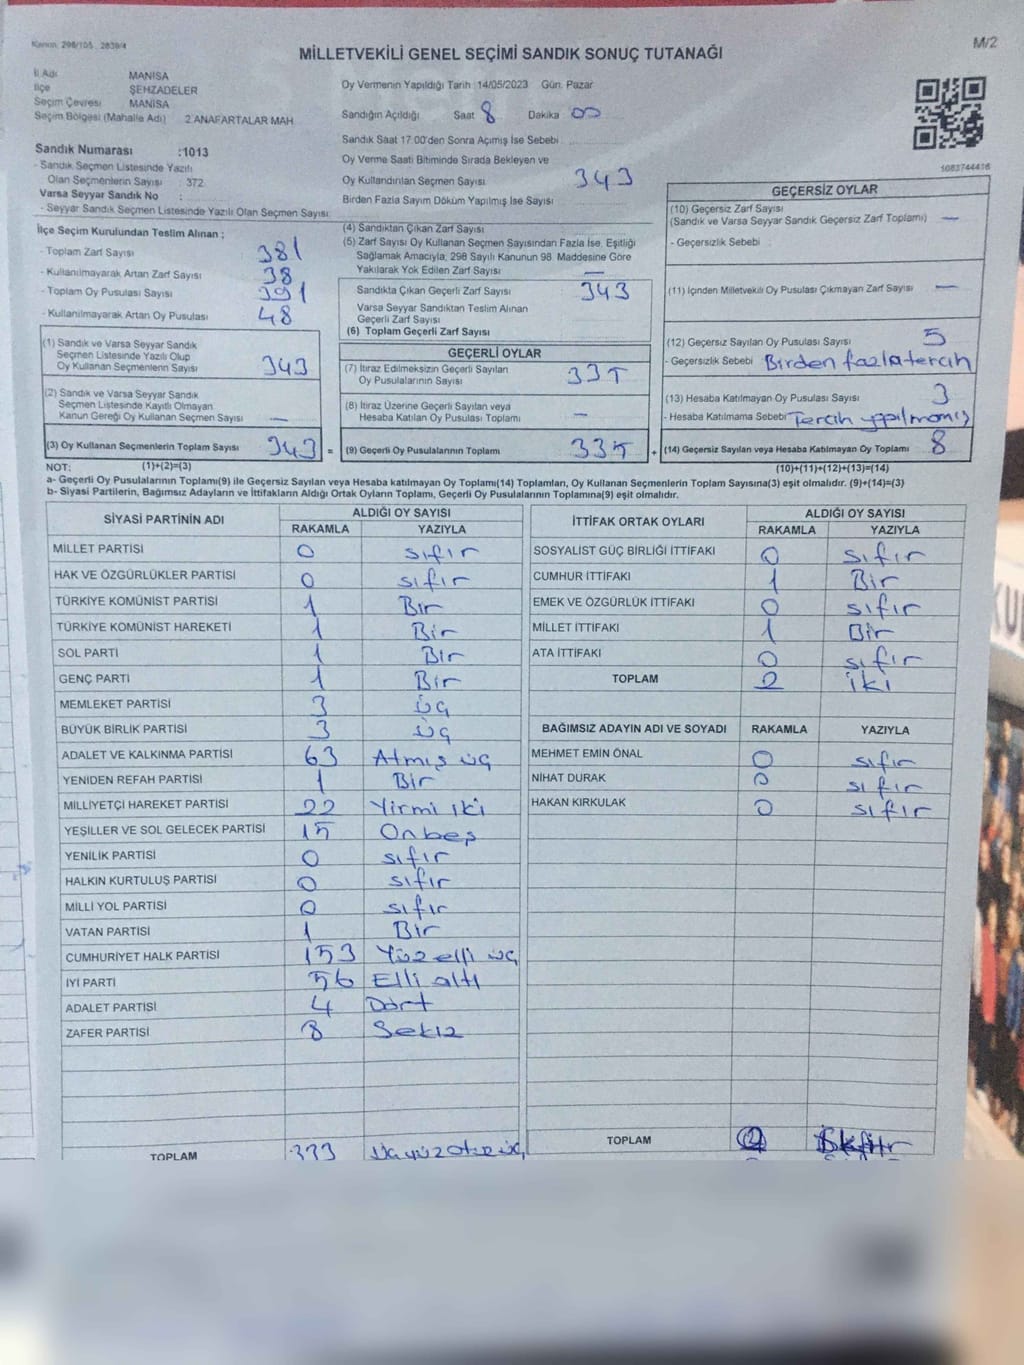 Kanun: 298/105 2839/4
M/2
MİLLETVEKİLİ GENEL SEÇİMİ SANDIK SONUÇ TUTANAĞI
İl Adı MANİSA
İlçe ŞEHZADELER
Seçim Çevresi MANİSA
Seçim Bölgesi (Mahalle Adı) 2.ANAFARTALAR MAH.
Oy Vermenin Yapıldığı Tarih : 14/05/2023 Gün: Pazar
Sandığın Açıldığı Saat 8 Dakika 00
Sandık Saat 17.00'den Sonra Açımış İse Sebebi
Oy Verme Saati Bitiminde Sırada Bekleyen ve
Oy Kullandırılan Seçmen Sayısı 343
Birden Fazla Sayım Döküm Yapılmış İse Sayısı
1082744416
Sandık Numarası :1013
- Sandık Seçmen Listesinde Yazılı
Olan Seçmenlerin Sayısı : 372
Varsa Seyyar Sandık No :
- Seyyar Sandık Seçmen Listesinde Yazılı Olan Seçmen Sayısı
İlçe Seçim Kurulundan Teslim Alınan ;
- Toplam Zarf Sayısı 381
- Kullanılmayarak Artan Zarf Sayısı 38
- Toplam Oy Pusulası Sayısı 391
- Kullanılmayarak Artan Oy Pusulası 48
(1) Sandık ve Varsa Seyyar Sandık
Seçmen Listesinde Yazılı Olup
Oy Kullanan Seçmenlerin Sayısı 343
(2) Sandık ve Varsa Seyyar Sandık
Seçmen Listesinde Kayıtlı Olmayan
Kanun Gereği Oy Kullanan Seçmen Sayısı —
(3) Oy Kullanan Seçmenlerin Toplam Sayısı 343 =
(4) Sandıktan Çıkan Zarf Sayısı
(5) Zarf Sayısı Oy Kullanan Seçmen Sayısından Fazla İse, Eşitliği
Sağlamak Amacıyla, 298 Sayılı Kanunun 98. Maddesine Göre
Yakılarak Yok Edilen Zarf Sayısı —
Sandıkta Çıkan Geçerli Zarf Sayısı 343
Varsa Seyyar Sandıktan Teslim Alınan
Geçerli Zarf Sayısı
(6) Toplam Geçerli Zarf Sayısı
GEÇERLİ OYLAR
(7) İtiraz Edilmeksizin Geçerli Sayılan
Oy Pusulalarının Sayısı 335
(8) İtiraz Üzerine Geçerli Sayılan veya
Hesaba Katılan Oy Pusulası Toplamı —
(9) Geçerli Oy Pusulalarının Toplamı 335 +
GEÇERSİZ OYLAR
(10) Geçersiz Zarf Sayısı
(Sandık ve Varsa Seyyar Sandık Geçersiz Zarf Toplamı) —
- Geçersizlik Sebebi :
(11) İçinden Milletvekili Oy Pusulası Çıkmayan Zarf Sayısı —
(12) Geçersiz Sayılan Oy Pusulası Sayısı 5
- Geçersizlik Sebebi Birden fazla tercih
(13) Hesaba Katılmayan Oy Pusulası Sayısı 3
- Hesaba Katılmama Sebebi Tercih yapılmamış
(14) Geçersiz Sayılan veya Hesaba Katılmayan Oy Toplamı 8
NOT: (1)+(2)=(3) (10)+(11)+(12)+(13)=(14)
a- Geçerli Oy Pusulalarının Toplamı(9) ile Geçersiz Sayılan veya Hesaba katılmayan Oy Toplamı(14) Toplamları, Oy Kullanan Seçmenlerin Toplam Sayısına(3) eşit olmalıdır. (9)+(14)=(3)
b- Siyasi Partilerin, Bağımsız Adayların ve İttifakların Aldığı Ortak Oyların Toplamı, Geçerli Oy Pusulalarının Toplamına(9) eşit olmalıdır.
SİYASİ PARTİNİN ADI ALDIĞI OY SAYISI
RAKAMLA YAZIYLA
MİLLET PARTİSİ 0 sıfır
HAK VE ÖZGÜRLÜKLER PARTİSİ 0 sıfır
TÜRKİYE KOMÜNİST PARTİSİ 1 Bir
TÜRKİYE KOMÜNİST HAREKETİ 1 Bir
SOL PARTİ 1 Bir
GENÇ PARTİ 1 Bir
MEMLEKET PARTİSİ 3 üç
BÜYÜK BİRLİK PARTİSİ 3 üç
ADALET VE KALKINMA PARTİSİ 63 Atmış üç
YENİDEN REFAH PARTİSİ 1 Bir
MİLLİYETÇİ HAREKET PARTİSİ 22 Yirmi iki
YEŞİLLER VE SOL GELECEK PARTİSİ 15 Onbeş
YENİLİK PARTİSİ 0 sıfır
HALKIN KURTULUŞ PARTİSİ 0 sıfır
MİLLİ YOL PARTİSİ 0 sıfır
VATAN PARTİSİ 1 Bir
CUMHURİYET HALK PARTİSİ 153 Yüz elli üç
İYİ PARTİ 56 Elli altı
ADALET PARTİSİ 4 Dört
ZAFER PARTİSİ 8 Sekiz
TOPLAM 333 Üçyüzotuzüç
İTTİFAK ORTAK OYLARI ALDIĞI OY SAYISI
RAKAMLA YAZIYLA
SOSYALİST GÜÇ BİRLİĞİ İTTİFAKI 0 sıfır
CUMHUR İTTİFAKI 1 Bir
EMEK VE ÖZGÜRLÜK İTTİFAKI 0 sıfır
MİLLET İTTİFAKI 1 Bir
ATA İTTİFAKI 0 sıfır
TOPLAM 2 iki
BAĞIMSIZ ADAYIN ADI VE SOYADI RAKAMLA YAZIYLA
MEHMET EMİN ÖNAL 0 sıfır
NİHAT DURAK 0 sıfır
HAKAN KIRKULAK 0 sıfır
TOPLAM